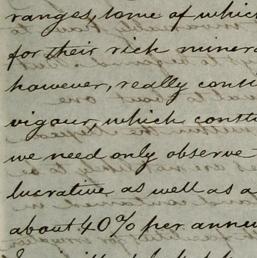 ranges, some of which
for their rich minera
however, really conti
vigour, which consti
we need only observe
lucrative as well as a
about 40% per annu